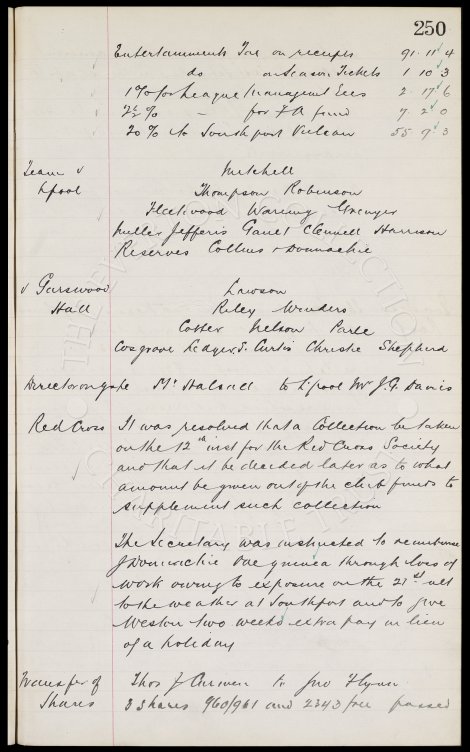 250
Entertainments Tax on receipts 91 11 4
do on Season Tickets 1 10 3
1% for League Managment Exes 2 17 6
7½ % - for F A fund 7 2 0
20 % to Southport Vulcan 55 9 3
Team v Mitchell
Lpool Thompson Robinson
Fleetwood Waring Grenyer
Fuller Jefferis Gault Clennell Harrison
Reserves Collins & Donnachie
v Garswood Lawson
Hall Riley Wenders
Cotter Nelson
Cosgrave Ledger S. Curtis Christie Shepherd
Director on gate Mr Halsall to Lpool Mr J. Davies
Red Cross It was resolved that a Collection be taken
on the 12th inst for the Red Cross Society
and that it be decided later as to what
amount be given out of the club funds to
supplement such collection
The Secretary was instructed to reimburse
J Donnachie One guinea through loss of
work owing to exposure on the 21st ult
to the weather at Southport and to give
Weston two weeks extra pay in lieu
of a holiday
Transfer of Thos J Curwen to Jno Flynn
Shares 3 Shares 960/961 and 2343 free passed